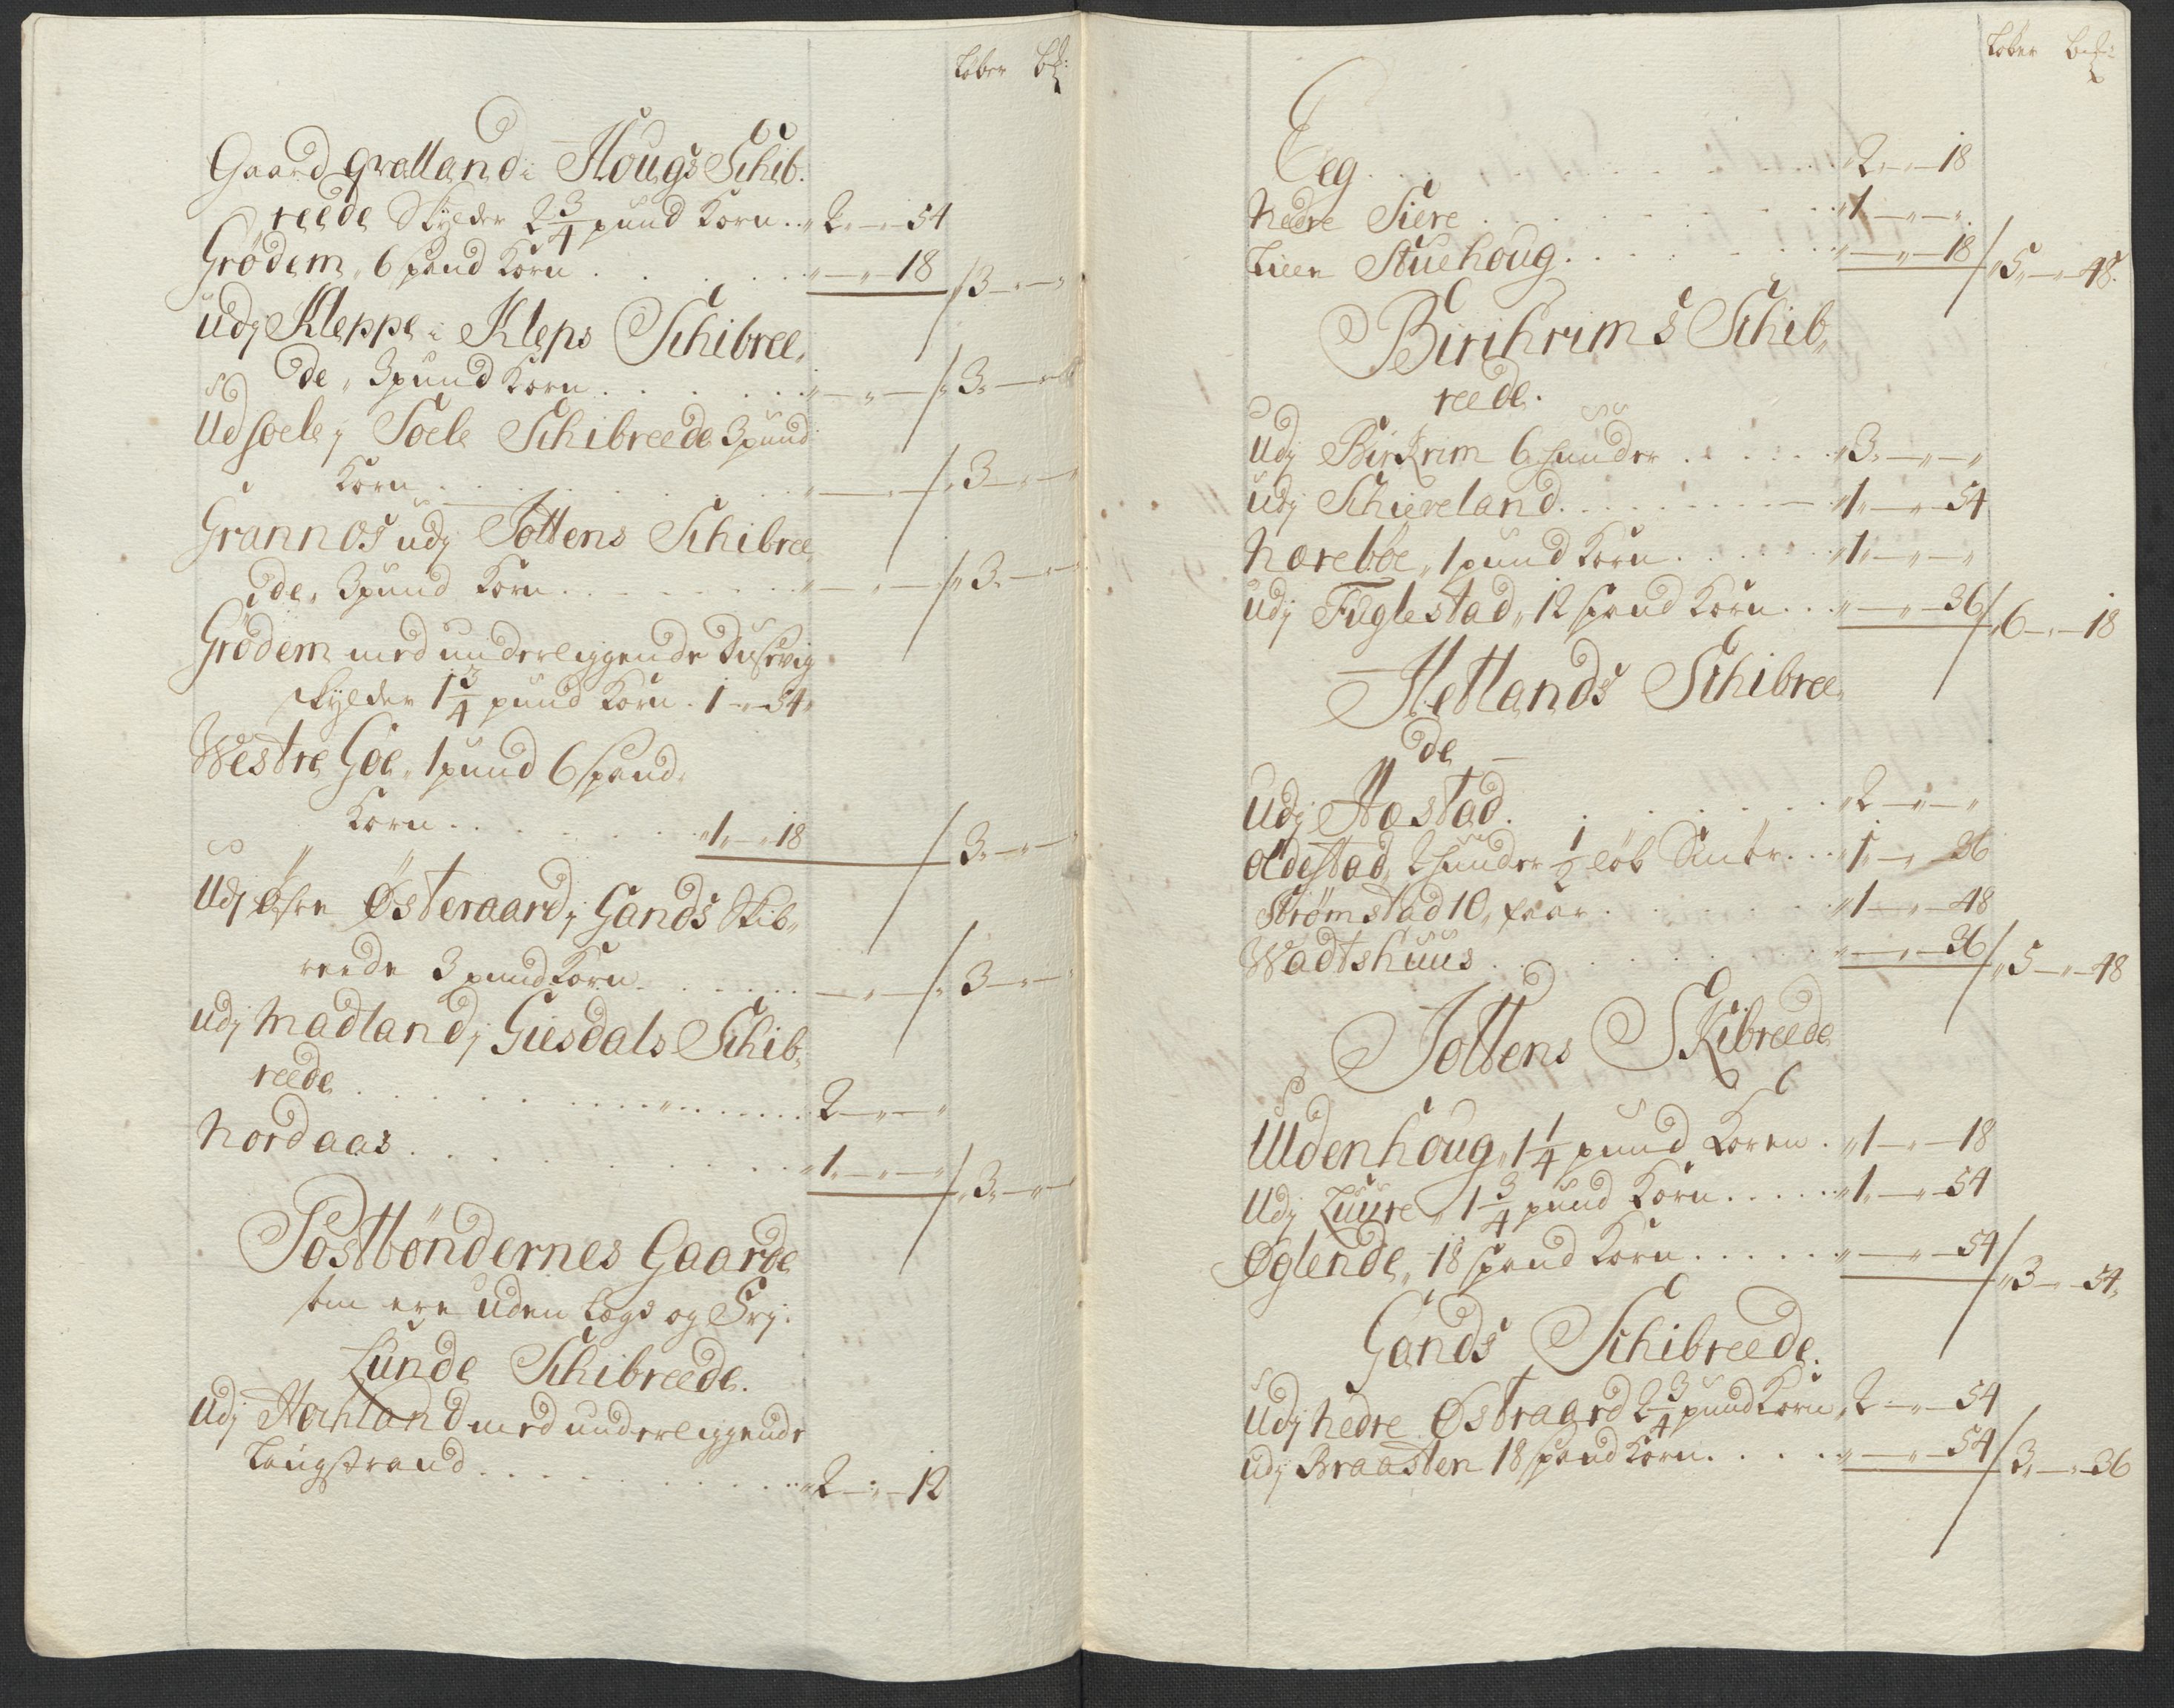 Løber bß:
Gaard qvalland i Hougs Schib.
reede Skylder 2 3/4 pund Korn .. „2„—„—54
Grödem„ 6 spand Korn . . . . „—„—18 / „3—„—„
udj Kleppe i Kleps Schibree„
de„ 3 pund Korn . . . . . „—„—/„3„—„—„
Ud soele j Soele Schibreede 3 pund
Korn . . . . . . . „—„—/„3—„—„
Grannos udj Jottens Schibree„
de„ 3 pund Korn . . . . . . „—„—/„3„—„—„
Grödem med underliggende Dusevig
skylder 1 3/4 pund Korn . 1—„—54„
Westre Goe„ 1 pund 6 spand„
Korn . . . . . . „1„—„18 / „3„—„—„
Udj öfre Østeraard j Gands Skib„
reede 3 pund Korn . . . . . —„—/„3—„—„
udj Madland j Giesdals Schib„
reede . . . . . . . . . . . 2—„—„
Nordaas . . . . . . . . „1„—„—„/„3„—„—„
Postböndernes Gaarde
som ere uden Legd og Frj:
Lunde Schibreede.
Udj Hochland med underliggende
Langstrand . . . . . . . . „2—„—12
Løber bß:
Eeg . . . . . . . . „2„—„—18
Nedre Siere . . . . . . . „1—„—„
Lien Stuehoug . . . . . „—„—18 / „5„—„—48.
Birchrims Schib„
reede.
Udj Birkrim 6 huuder . . . . . „3„—„—„
udj Schieveland . . . . . . . „1„—„—54
Norebøe„ 1 pund Korn . . . . . „1„—„—„
udj Fuglestad„ 12 spand Korn . . . „—„—36 / „6—„—18
Hetlands Schibree„
de
Udj Hostad . . . . . . . „2—„—„
Oldestad„ 2 huuder 1/2 löb Smör . . . „1„—„—36
Strømstad 10„ faar . . . . . . „1—„—48
Wadtshuus . . . . . . . „—„—36 / „5—„—48
Jottens Skibreede
Uldenhoug„ 1 1/4 pund Koren . „1—„—18
Udj Luure„ 1 3/4 pund Korn . . . . . „1„—„—54
Øglende„ 18 spand Korn . . . . . . „—„—54 / „3—„—54„
Gands Schibreede.
Udj Nedre Østraard 2 3/4 pund Korn „2—„—54
udj Braasten 18 spand Korn . . . . . „—„—54 / „3„—„—36